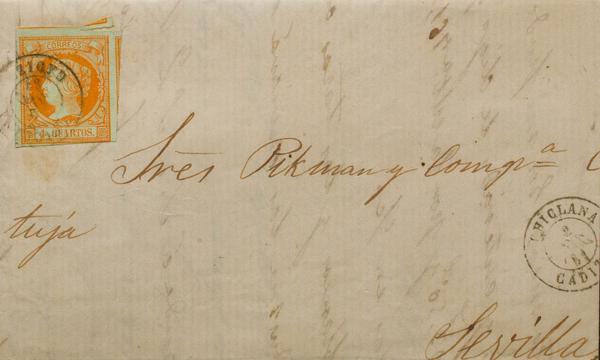 CORREOS
4 CUARTOS.
CADIZ
Sres Pikman y Compª C
tuja
CHICLANA
2
61
CADIZ
Sevilla